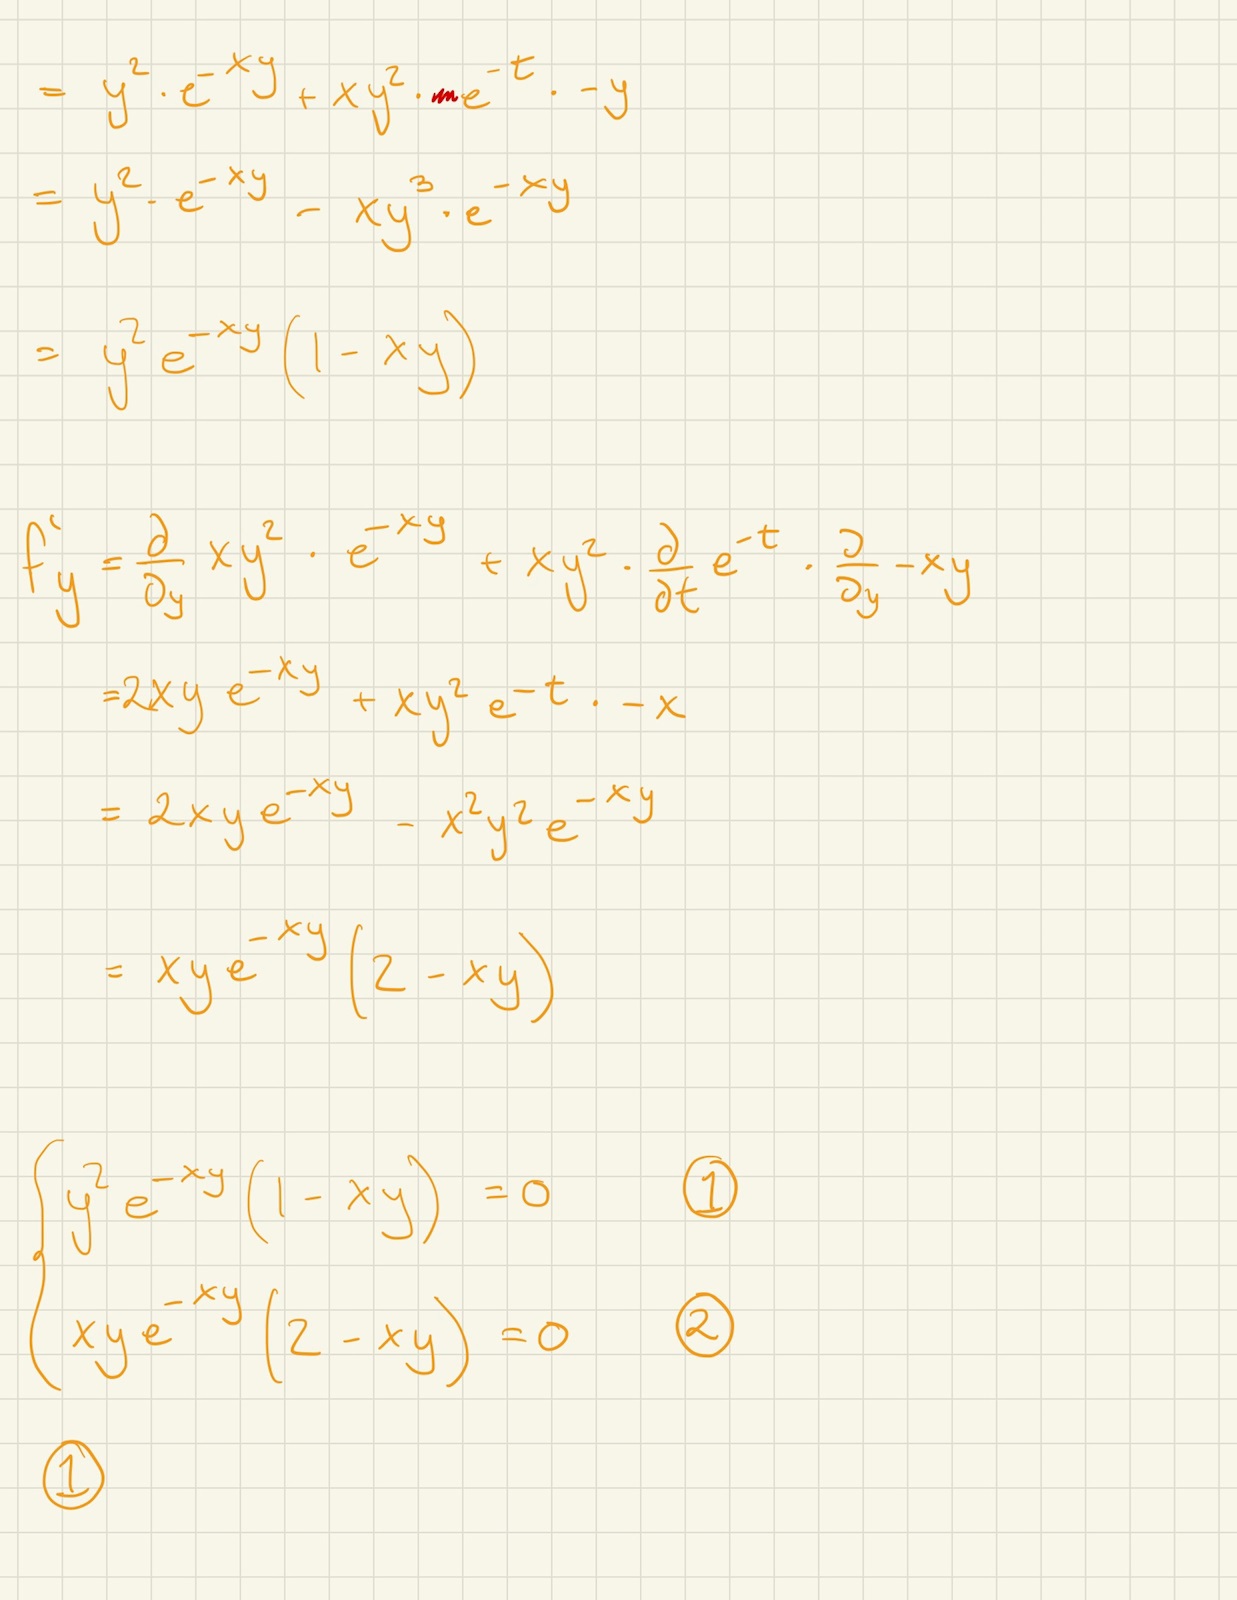 = y² · e^(-xy) + xy² · e^(-t) · -y
= y² · e^(-xy) - xy³ · e^(-xy)
= y² e^(-xy) (1 - xy)
f'y = ∂/∂y xy² · e^(-xy) + xy² · ∂/∂t e^(-t) · ∂/∂y -xy
= 2xy e^(-xy) + xy² e^(-t) · -x
= 2xy e^(-xy) - x²y² e^(-xy)
= xy e^(-xy) (2 - xy)
{ y² e^(-xy) (1 - xy) = 0 ①
xy e^(-xy) (2 - xy) = 0 ②
①